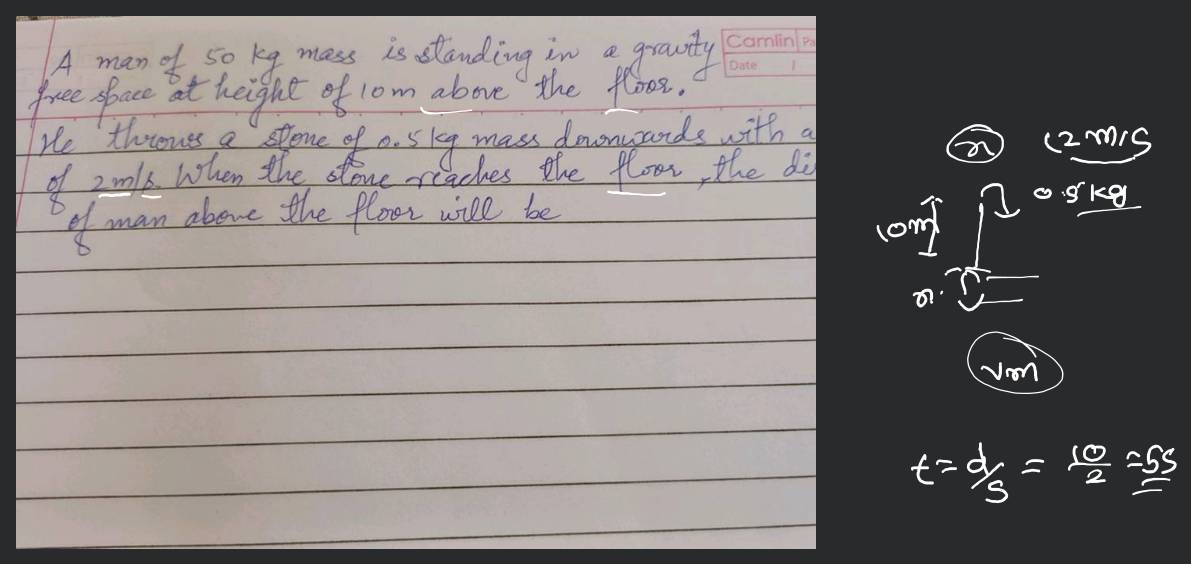 Camlin Pa
Date /
A man of 50 kg mass is standing in a gravity
free space at height of 10m above the floor.
He throws a stone of 0.5 kg mass downwards with a
of 2m/s. When the stone reaches the floor, the di
of man above the floor will be
2 m/s
0.5 kg
10m
vm
t = d/s = 10/2 = 5s